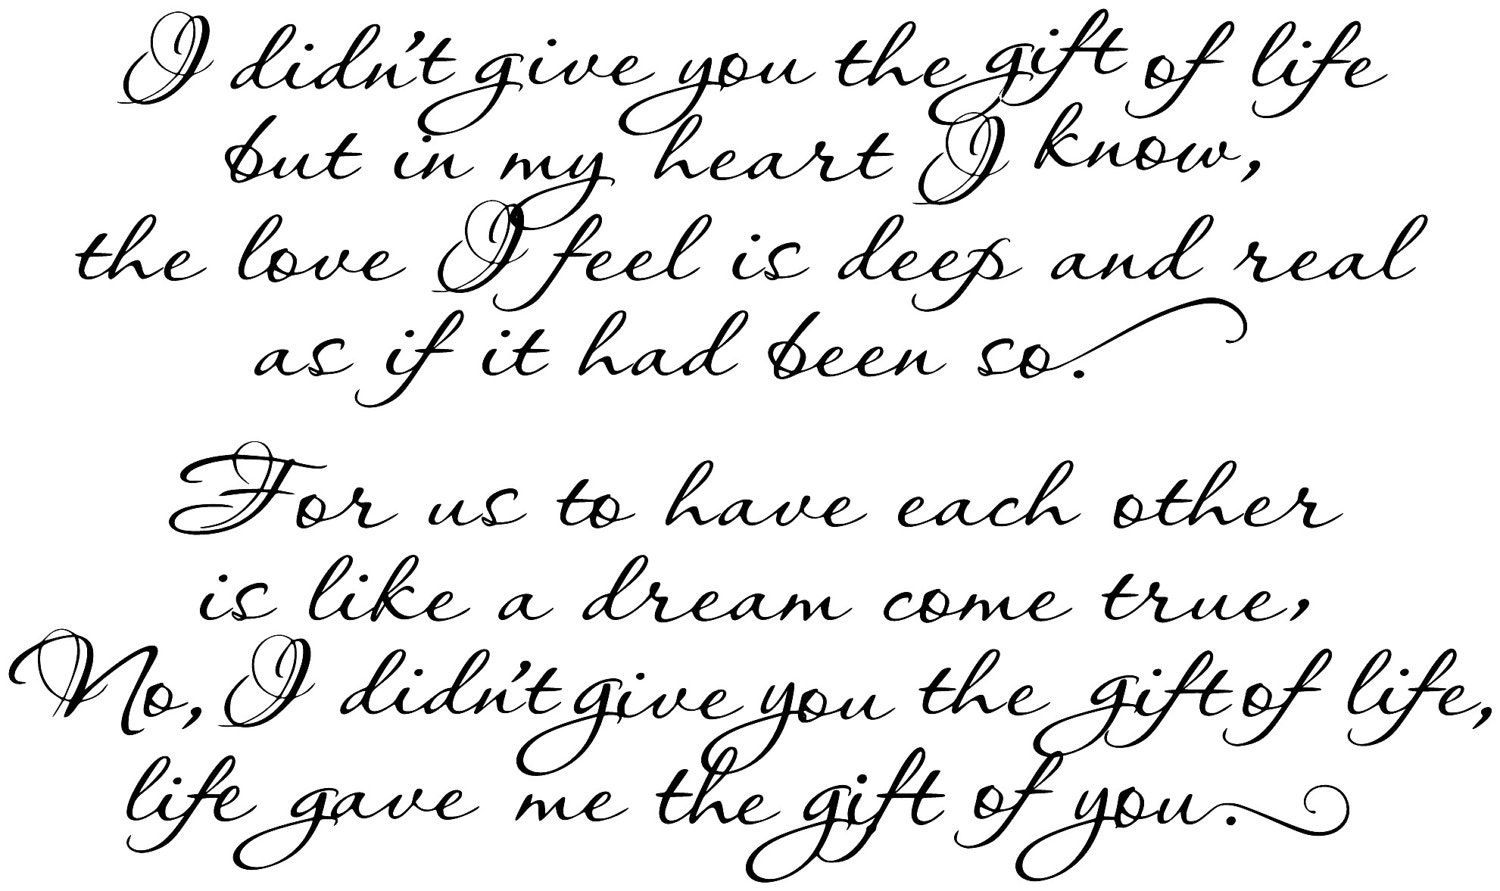 I didn't give you the gift of life
but in my heart I know,
the love I feel is deep and real
as if it had been so.
For us to have each other
is like a dream come true,
No, I didn't give you the gift of life,
life gave me the gift of you.